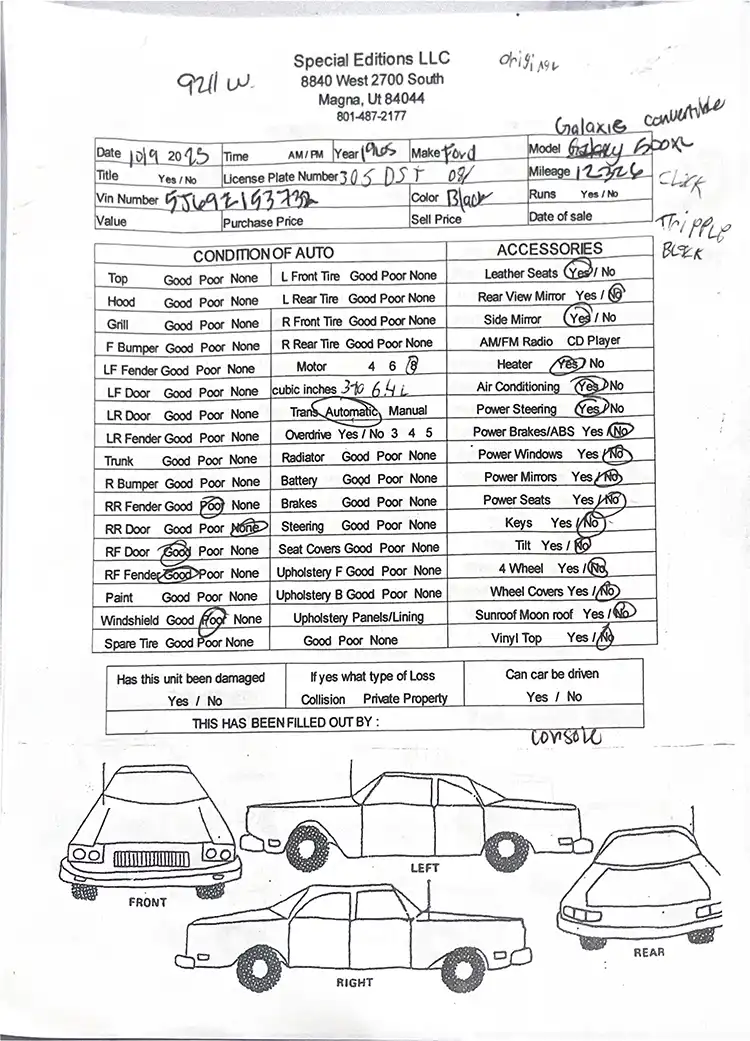 Special Editions LLC
8840 West 2700 South
Magna, Ut 84044
801-487-2177
9211 W.
Galaxie convertible
Date 10/9 2025 Time AM / PM Year 1965 Make Ford Model Galaxy 500XL
Title Yes / No License Plate Number 305 DST Mileage 12326
Vin Number Color Black Runs Yes / No
Value Purchase Price Sell Price Date of sale
CLICK
Tripple
BLACK
CONDITION OF AUTO ACCESSORIES
Top Good Poor None L Front Tire Good Poor None Leather Seats Yes / No
Hood Good Poor None L Rear Tire Good Poor None Rear View Mirror Yes / No
Grill Good Poor None R Front Tire Good Poor None Side Mirror Yes / No
F Bumper Good Poor None R Rear Tire Good Poor None AM/FM Radio CD Player
LF Fender Good Poor None Motor 4 6 8 Heater Yes / No
LF Door Good Poor None cubic inches 390 6.4 L Air Conditioning Yes / No
LR Door Good Poor None Trans Automatic Manual Power Steering Yes / No
LR Fender Good Poor None Overdrive Yes / No 3 4 5 Power Brakes/ABS Yes / No
Trunk Good Poor None Radiator Good Poor None Power Windows Yes / No
R Bumper Good Poor None Battery Good Poor None Power Mirrors Yes / No
RR Fender Good Poor None Brakes Good Poor None Power Seats Yes / No
RR Door Good Poor None Steering Good Poor None Keys Yes / No
RF Door Good Poor None Seat Covers Good Poor None Tilt Yes / No
RF Fender Good Poor None Upholstery F Good Poor None 4 Wheel Yes / No
Paint Good Poor None Upholstery B Good Poor None Wheel Covers Yes / No
Windshield Good Poor None Upholstery Panels/Lining Sunroof Moon roof Yes / No
Spare Tire Good Poor None Good Poor None Vinyl Top Yes / No
Has this unit been damaged If yes what type of Loss Can car be driven
Yes / No Collision Private Property Yes / No
THIS HAS BEEN FILLED OUT BY :
console
FRONT
LEFT
RIGHT
REAR